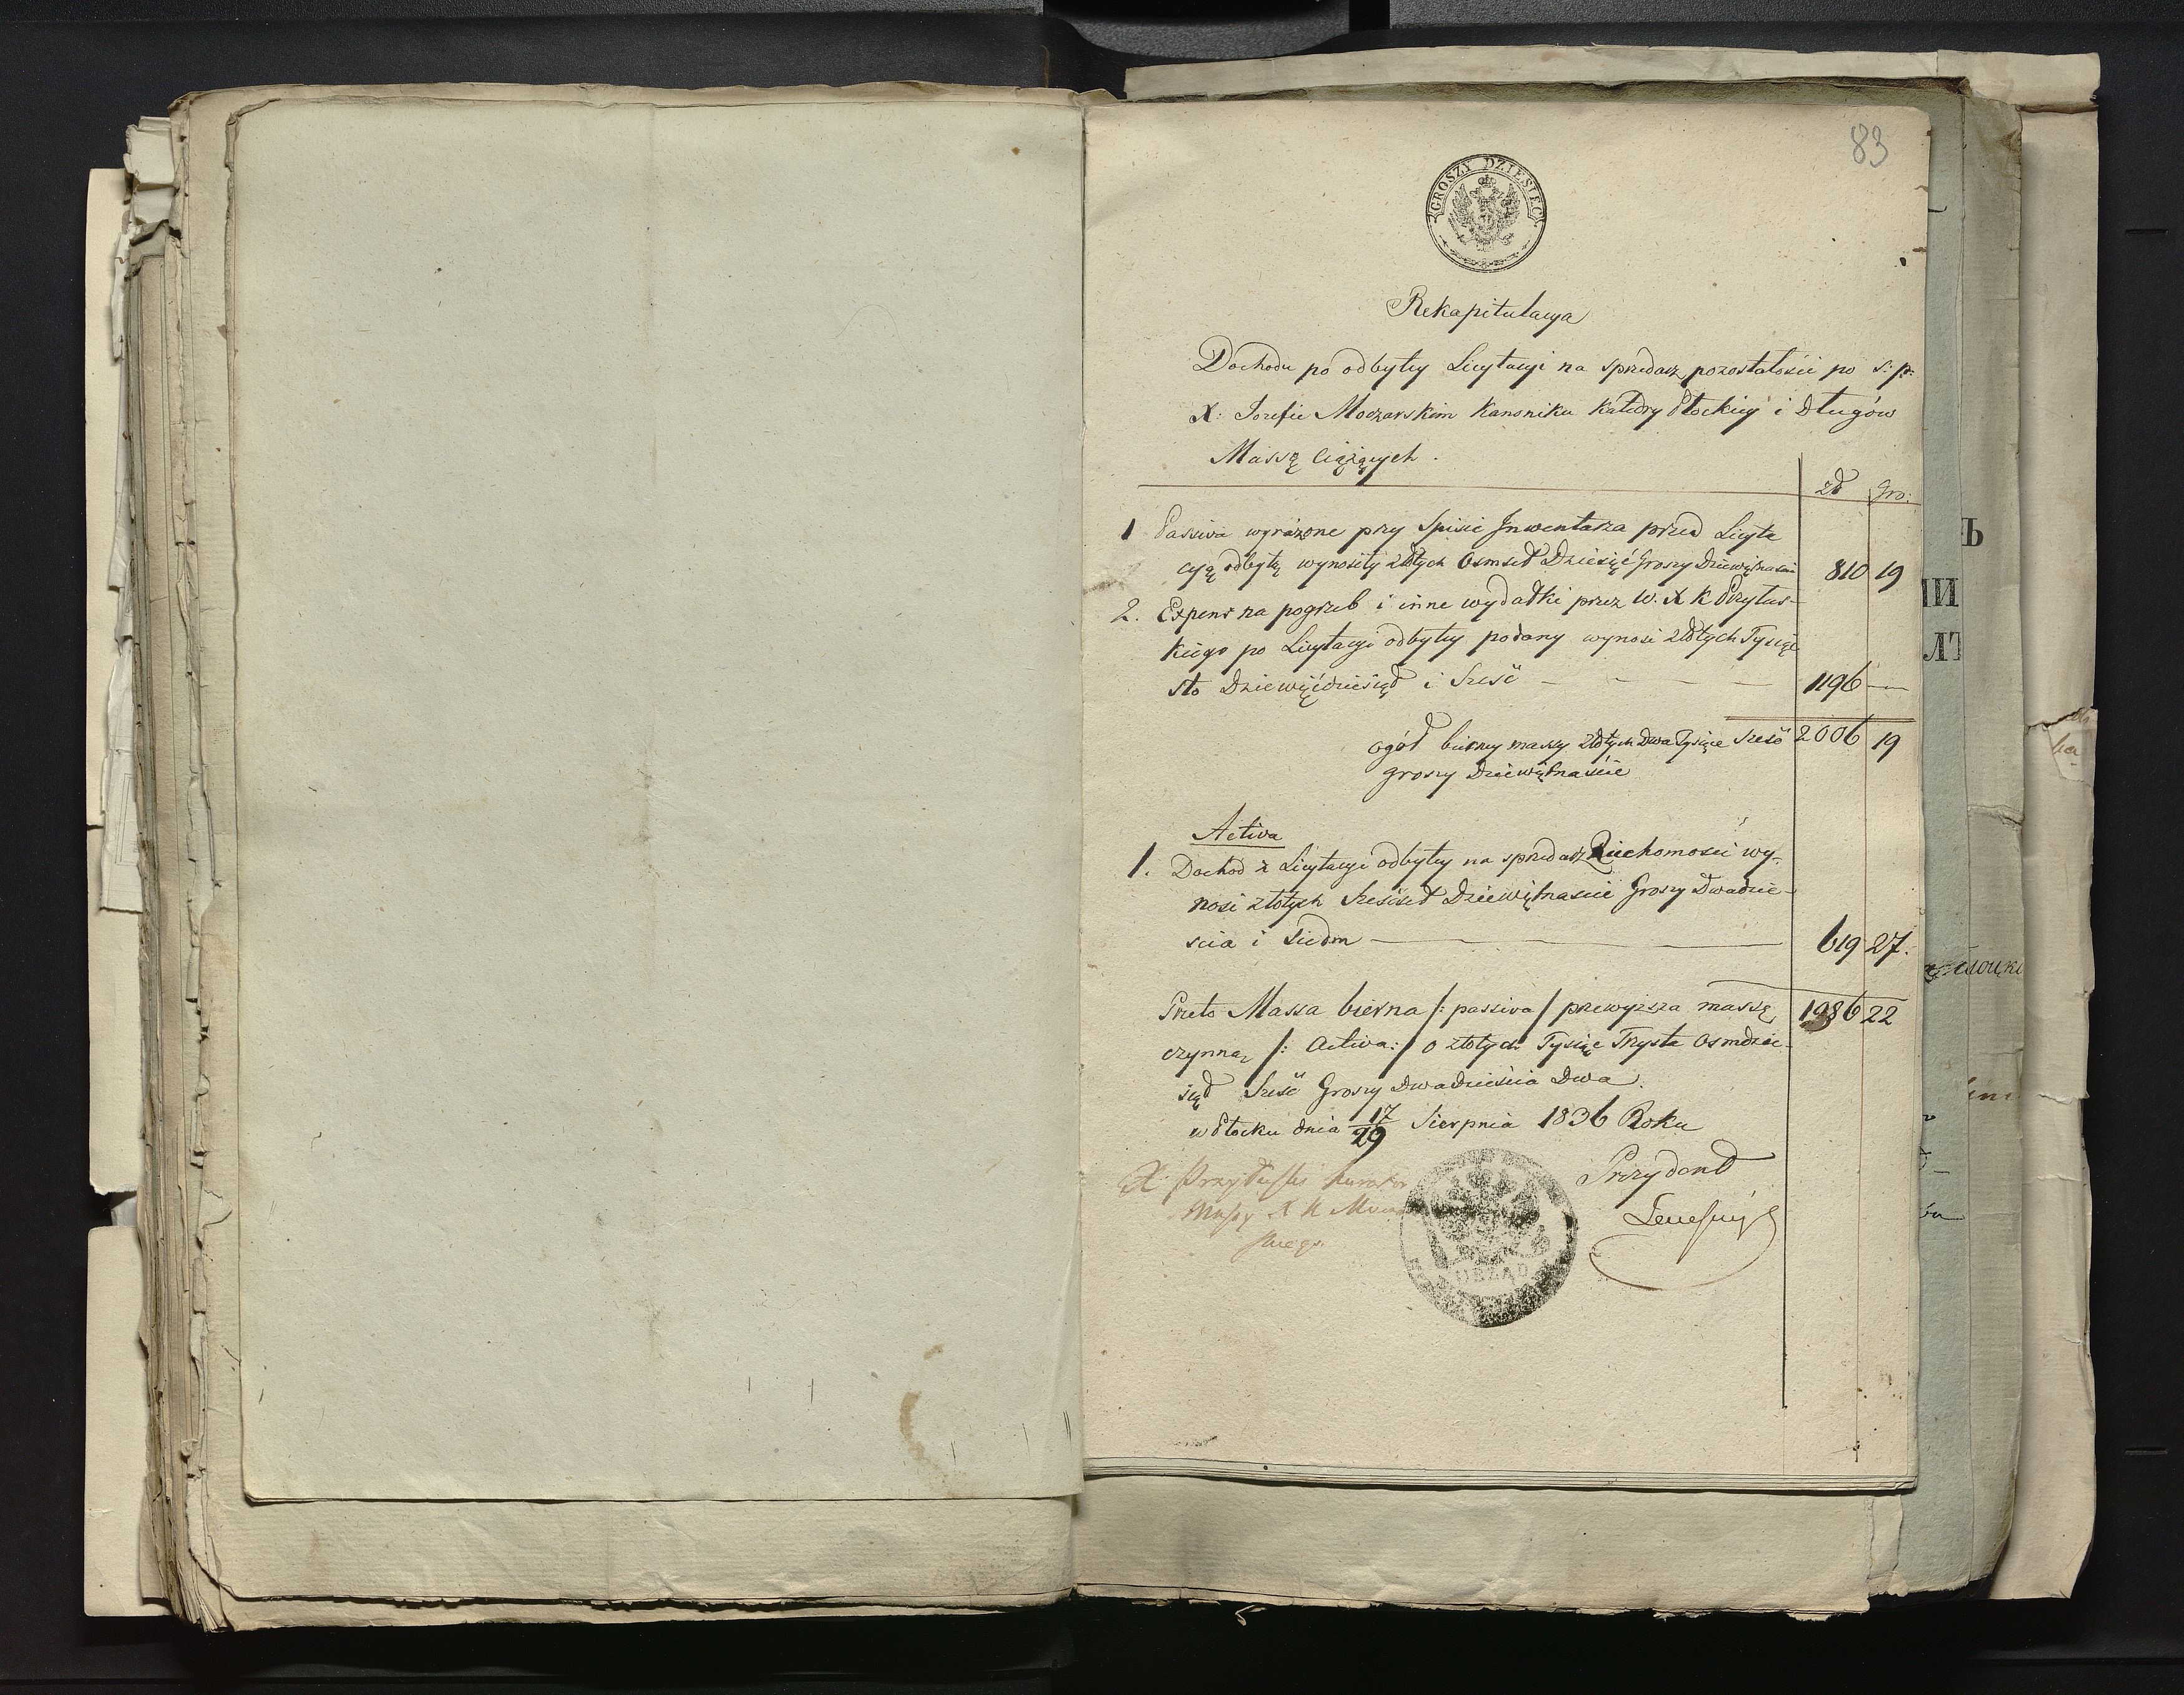 83
GROSZY DZIESIĘĆ
Rekapitulacya
Dochodu po odbytey Licytacyi na sprzedasz pozostałości po ś: p:
X: Jozefie Moczarskim Kanoniku Katedry Płockiey i Długów
Massę ciążących.
zł Gro:
1 Passiva wyrażone przy Spisie Inwentarza przed Licyta
cyą odbytą wynosiły złotych Osmset Dziesięć Groszy Dziewiętnaście 810 19
2. Expens na pogrzeb i inne wydatki przez W. X K Przytus-
kiego po Licytacyi odbytey podany wynosi złotych Tysiąc
sto Dziewięćdziesiąt i Sześć — — — — 1196 —
ogół bierney massy złotych Dwa Tysiące Sześć 2006 19
groszy Dziewiętnaście
Activa
1. Dochod z Licytacyi odbytey na sprzedasz Ruchomości wy-
nosi złotych Sześćset Dziewiętnaście Groszy Dwadzie-
ścia i Siedm — 619 27.
Przeto Massa bierna /: passiva / przewyższa massę 1386 22
czynną /: Activa: / o złotych Tysiąc Trzysta Osmdzie-
siąt Sześć Groszy Dwadzieścia Dwa.
w Płocku dnia 17/29 Sierpnia 1836 Roku
Prezydent
X Przytuski Kurator
Massy X K
skiego.
URZĄD